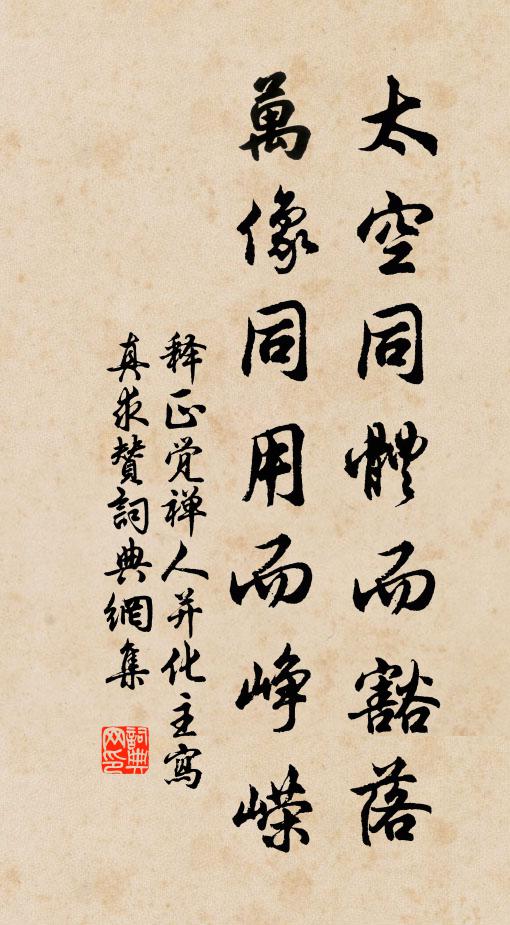 太空同體而豁落
萬像同用而崢嶸
释正觉禅人并化主寫
真求贊詞典網集
詞典网印